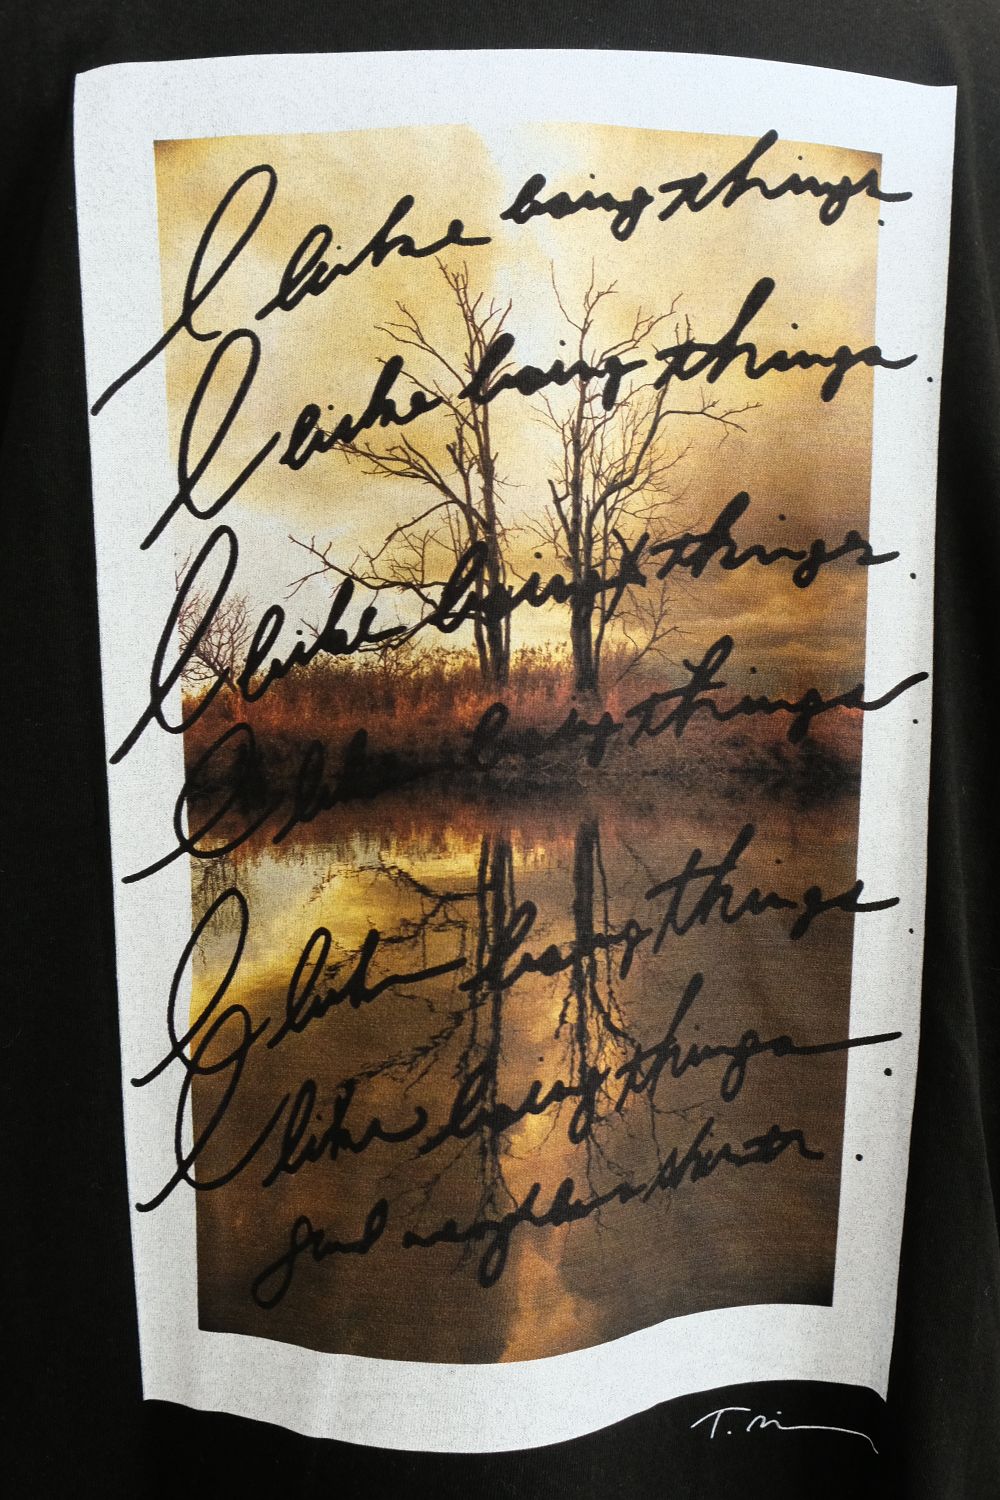 I like boring things.
I like boring things.
I like boring things.
I like boring things.
I like boring things.
I like boring things.
good neighbors shirts.
T.